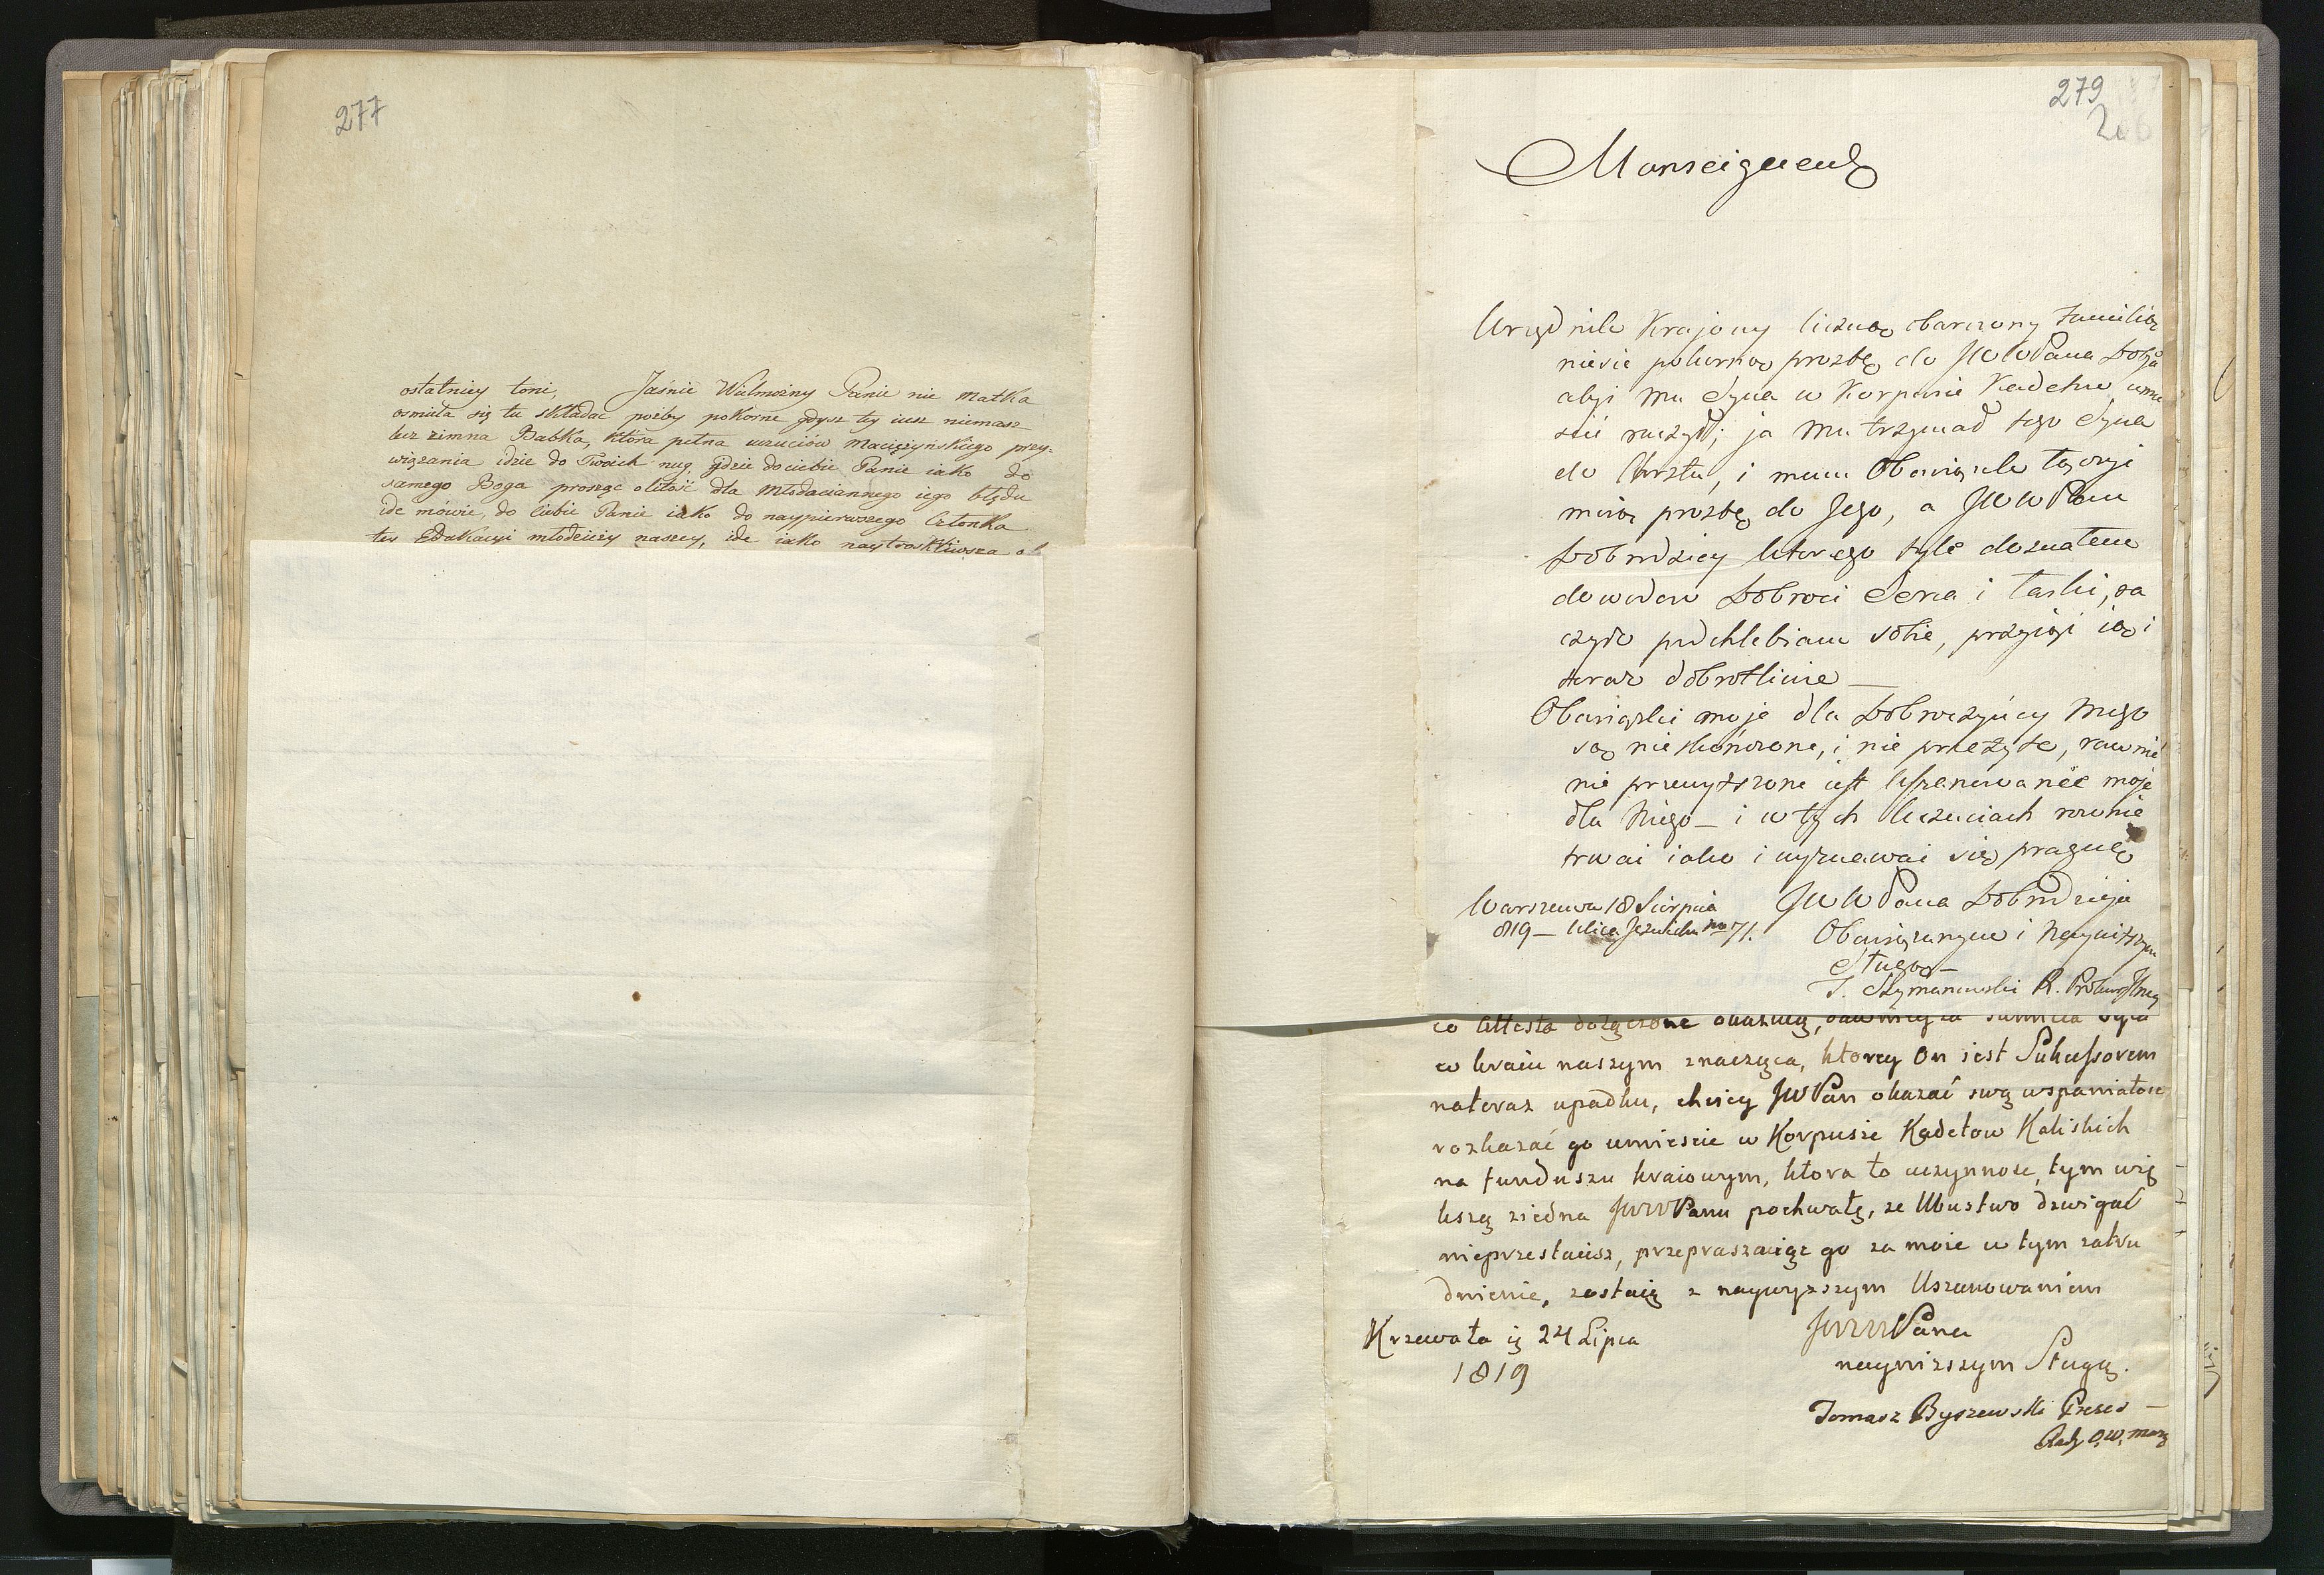 277
ostatniey toni, Jaśnie Wielmożny Panie nie matka
osmiela się tu składać proźby pokorne gdysz tey iusz niemasz
lecz zimna Babka, która pełna uczuciów Macieżyńskiego przy=
wiązania idzie do Twoich nug, idzie do ciebie Panie iako do
samego Boga prosząc o litość dla Młodaciannego iego błędu
ide mówie, do ciebie Panie iako do naypierwszego Członka
tey Edukacyi młodzieży naszey, ide iako naytroskliwsza
279
Monseigneur
Urzędnik Krajowy liczną obarczony Familią
niesie pokorną prozbę do JWWPana Dobja
abyś mu Syna w Korpusie Kadetów umie
ścić raczył; ja mu trzymał tego Syna
do Chrztu, i mam Obowiązek łączyć
moią prozbę do Jego, a JWWPan
Dobrodziey którego tyle doznałem
dowodów Dobroci Serca i łaski, ra
czysz podchlebiam sobie, przyiąć ią i
teraz dobrotliwie —
Obowiązki moje dla Dobroczyńcy mego
są nieskończone, i nie przeżyte, rownie
nie przewyższone iest Uszanowanie moje
dla Niego — i w tych Uczuciach rownie
trwać iako i wyznawać się pragnę
JWWPana Dobrodzieja
Warszawa 18 Sierpnia
819 — Ulica Jezuicka No 71.
Obowiązanym i Nayniższym
Sługą —
J. Szymanowski R.
co Attesta dołączone okazuią, familia była
w kraiu naszym znacząca, ktorey On iest Sukcessorem
nateraz upadku, chciey JWPan okazać swą wspaniałosc
rozkazać go umiescic w Korpusie Kadetow Kaliskich
na funduszu kraiowym, ktora to uczynnosc, tym wię
kszą ziedna JWWPanu pochwałę, ze Ubustwo dzwigać
nieprzestaiesz, przepraszaiąc go za moie w tym zatru
dnienie, zostaię z naywyzszym Uszanowaniem
JWWPana
Krzewata d. 24 Lipca
1819
naynizszym Sługą.
Tomasz Byszewski Prezes —
Rady O. W. Maz